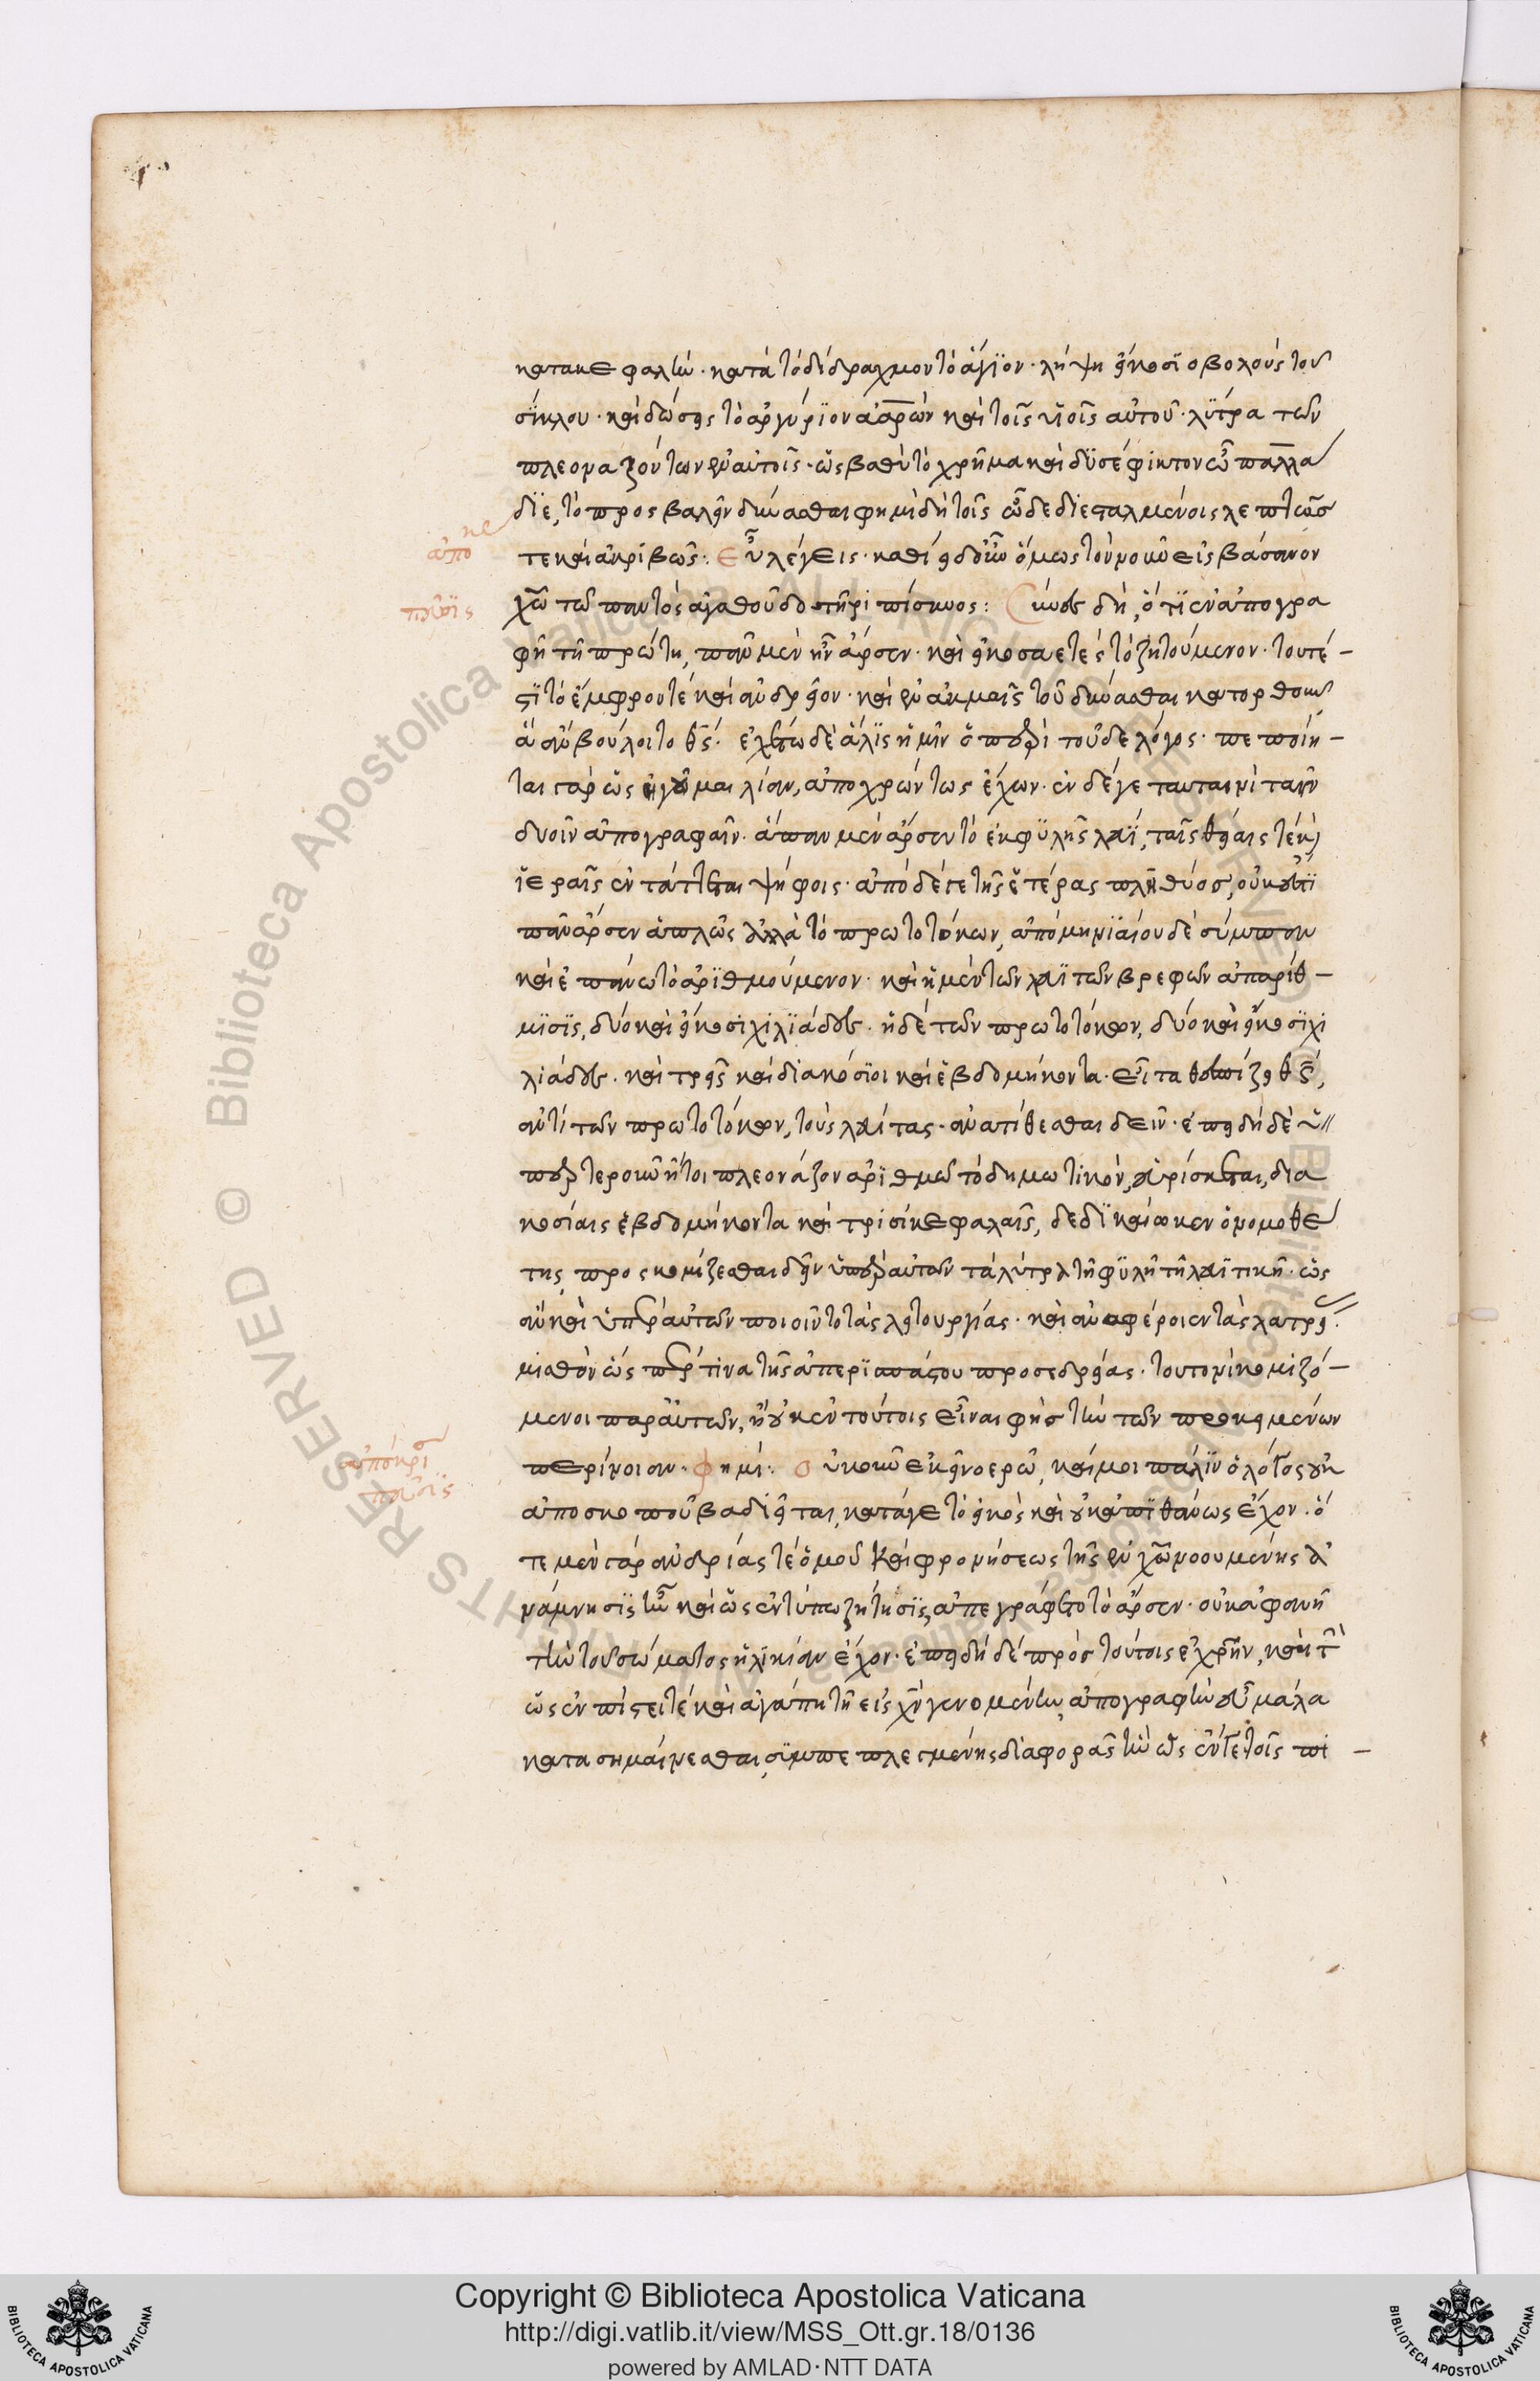 κατακεφαλὴν· κατὰ τὸ δίδραχμον τὸ ἅγϊον· λήψη εἴκοσϊ ὀβολοὺς τοῦ
σίκλου· καὶ δώσεις τὸ ἀργύρϊον ἀαρὼν καὶ τοῖς υἱοῖς αὐτοῦ· λύτρα τῶν
πλεοναζόντων ἐν αὐτοῖς· ὡς βαθὺ τὸ χρῆμα καὶ δυσέφικτον ὦ παλλά
δϊε, τὸ προσβαλεῖν δύνασθαι φημὶ δὴ τοῖς ὧδε διεσταλμένοις λεπτῶς
τε καὶ ἀκριβῶς:. Εὖ λέγεις· καθίει δ' οὖν ὅμως τὸν νοῦν εἰς βάσανον
χῶ τῶ παντὸς ἀγαθοῦ δοτῆρι πίσυνος: σύνες δὴ, ὅτι ἐν ἀπογρα
φῆ τῆ πρώτη, πᾶν μὲν ἦν ἄρσεν· καὶ εἰκοσαετὲς τὸ ζητούμενον· τουτέ–
στϊ τὸ ἔμφρον τὲ καὶ ἀνδρεῖον· καὶ ἐν ἀκμαῖς τοῦ δύνασθαι κατορθοῦν
ἃ ἂν βούλοιτο θς. ἐχέτω δὲ ἅλϊς ἡμῖν ὁ περὶ τοῦδε λόγος· πεποίη–
ται γὰρ ὡς ἡγοῦμαι λίαν, ἀποχρώντως ἔχων· ἐν δέ γε ταυταινὶ ταῖν
δυοῖν ἀπογραφαῖν· ἅπαν μὲν ἄρσεν τὸ ἐκ φυλῆς λευί, ταῖς θείαις τὲ κ
ἱεραῖς ἐντάττεται ψήφοις· ἀπὸ δέ γε τῆς ἑτέρας πληθύος, οὐκέτι
πᾶν ἄρσεν ἁπλῶς ἀλλὰ τὸ πρωτοτόκων, ἀπὸ μηνιαίου δὲ σύμπαν
καὶ ἐπάνω τὸ ἀριθμούμενον· καὶ ἡ μὲν τῶν λευϊτῶν βρεφῶν ἀπαρίθ–
μισϊς, δύο καὶ εἴκοσι χιλϊάδες· ἡ δὲ τῶν πρωτοτόκων, δύο καὶ εἴκοσϊ χι
λιάδες· καὶ τρεῖς καὶ διακόσϊοι καὶ ἑβδομήκοντα· εἶτα θεσπίζει θς,
ἀντὶ τῶν πρωτοτόκων, τοὺς λευίτας· ἀνατίθεσθαι δεῖν· ἐπειδὴ δὲ
περιττεροῦν ἤτοι πλεονάζον ἀριθμῶ τὸ δημωτικὸν, εὑρίσκεται, δια
κοσίαις ἑβδομήκοντα καὶ τρισὶ κεφαλαῖς, δεδικαίωκεν ὁ νομοθέ
της, προσκομίζεσθαι δεῖν ὑπὲρ αὐτῶν τὰ λύτρα τῆ φυλῆ τῆ λευϊτικῆ· ὡς
ἂν καὶ ὑπὲρ αὐτῶν ποιοῖντο τὰς λειτουργίας· καὶ ἀναφέροιεν τὰς λατρεί.
μισθὸν ὡς περ τινα τῆς ἀπερϊσπάστου προσεδρείας· τουτονὶ κομιζό–
μενοι παρ' αὐτῶν, ἢ οὐκ ἐν τούτοις εἶναι φὴς τὴν τῶν προκειμένων
περίνοιαν· φημί:. οὐκοῦν ἐκεῖνο ἐρῶ, καί μοι πάλϊν ὁ λόγος οὐκ
ἀπὸ σκοποῦ βαδιεῖται, κατάγε τὸ εἰκὸς καὶ οὐκ ἀπιθάνως ἔχον· ὅ
τε μὲν γὰρ ἀνδρίας τὲ ὁμοῦ καὶ φρονήσεως τῆς ἐν χῶ νοουμένης ἀ
νάμνησϊς ἦν καὶ ὡς ἐν τύπω ζήτησϊς, ἀπεγράφετο τὸ ἄρσεν· οὐκ ἀφανῆ
τὴν τοῦ σώματος ἡλικίαν ἔχον· ἐπειδὴ δὲ πρὸς τούτοις ἐχρῆν, καὶ τὴν
ὡς ἐν πίστει τὲ καὶ ἀγάπη τῆ εἰς χν γενομένην, ἀπογραφὴν εὖ μάλα
κατασημαίνεσθαι, συμπεπλεγμένης διαφορᾶς τῆς ὡς ἔν γε τοῖς πι–
ἀπο
κρ
παλλάδϊς
ἀπόκρισ
παλλάδϊς
Copyright © Biblioteca Apostolica Vaticana
http://digi.vatlib.it/view/MSS_Ott.gr.18/0136
powered by AMLAD·NTT DATA
BIBLIOTECA APOSTOLICA VATICANA
BIBLIOTECA APOSTOLICA VATICANA
© Biblioteca Apostolica Vaticana ALL RIGHTS RESERVED